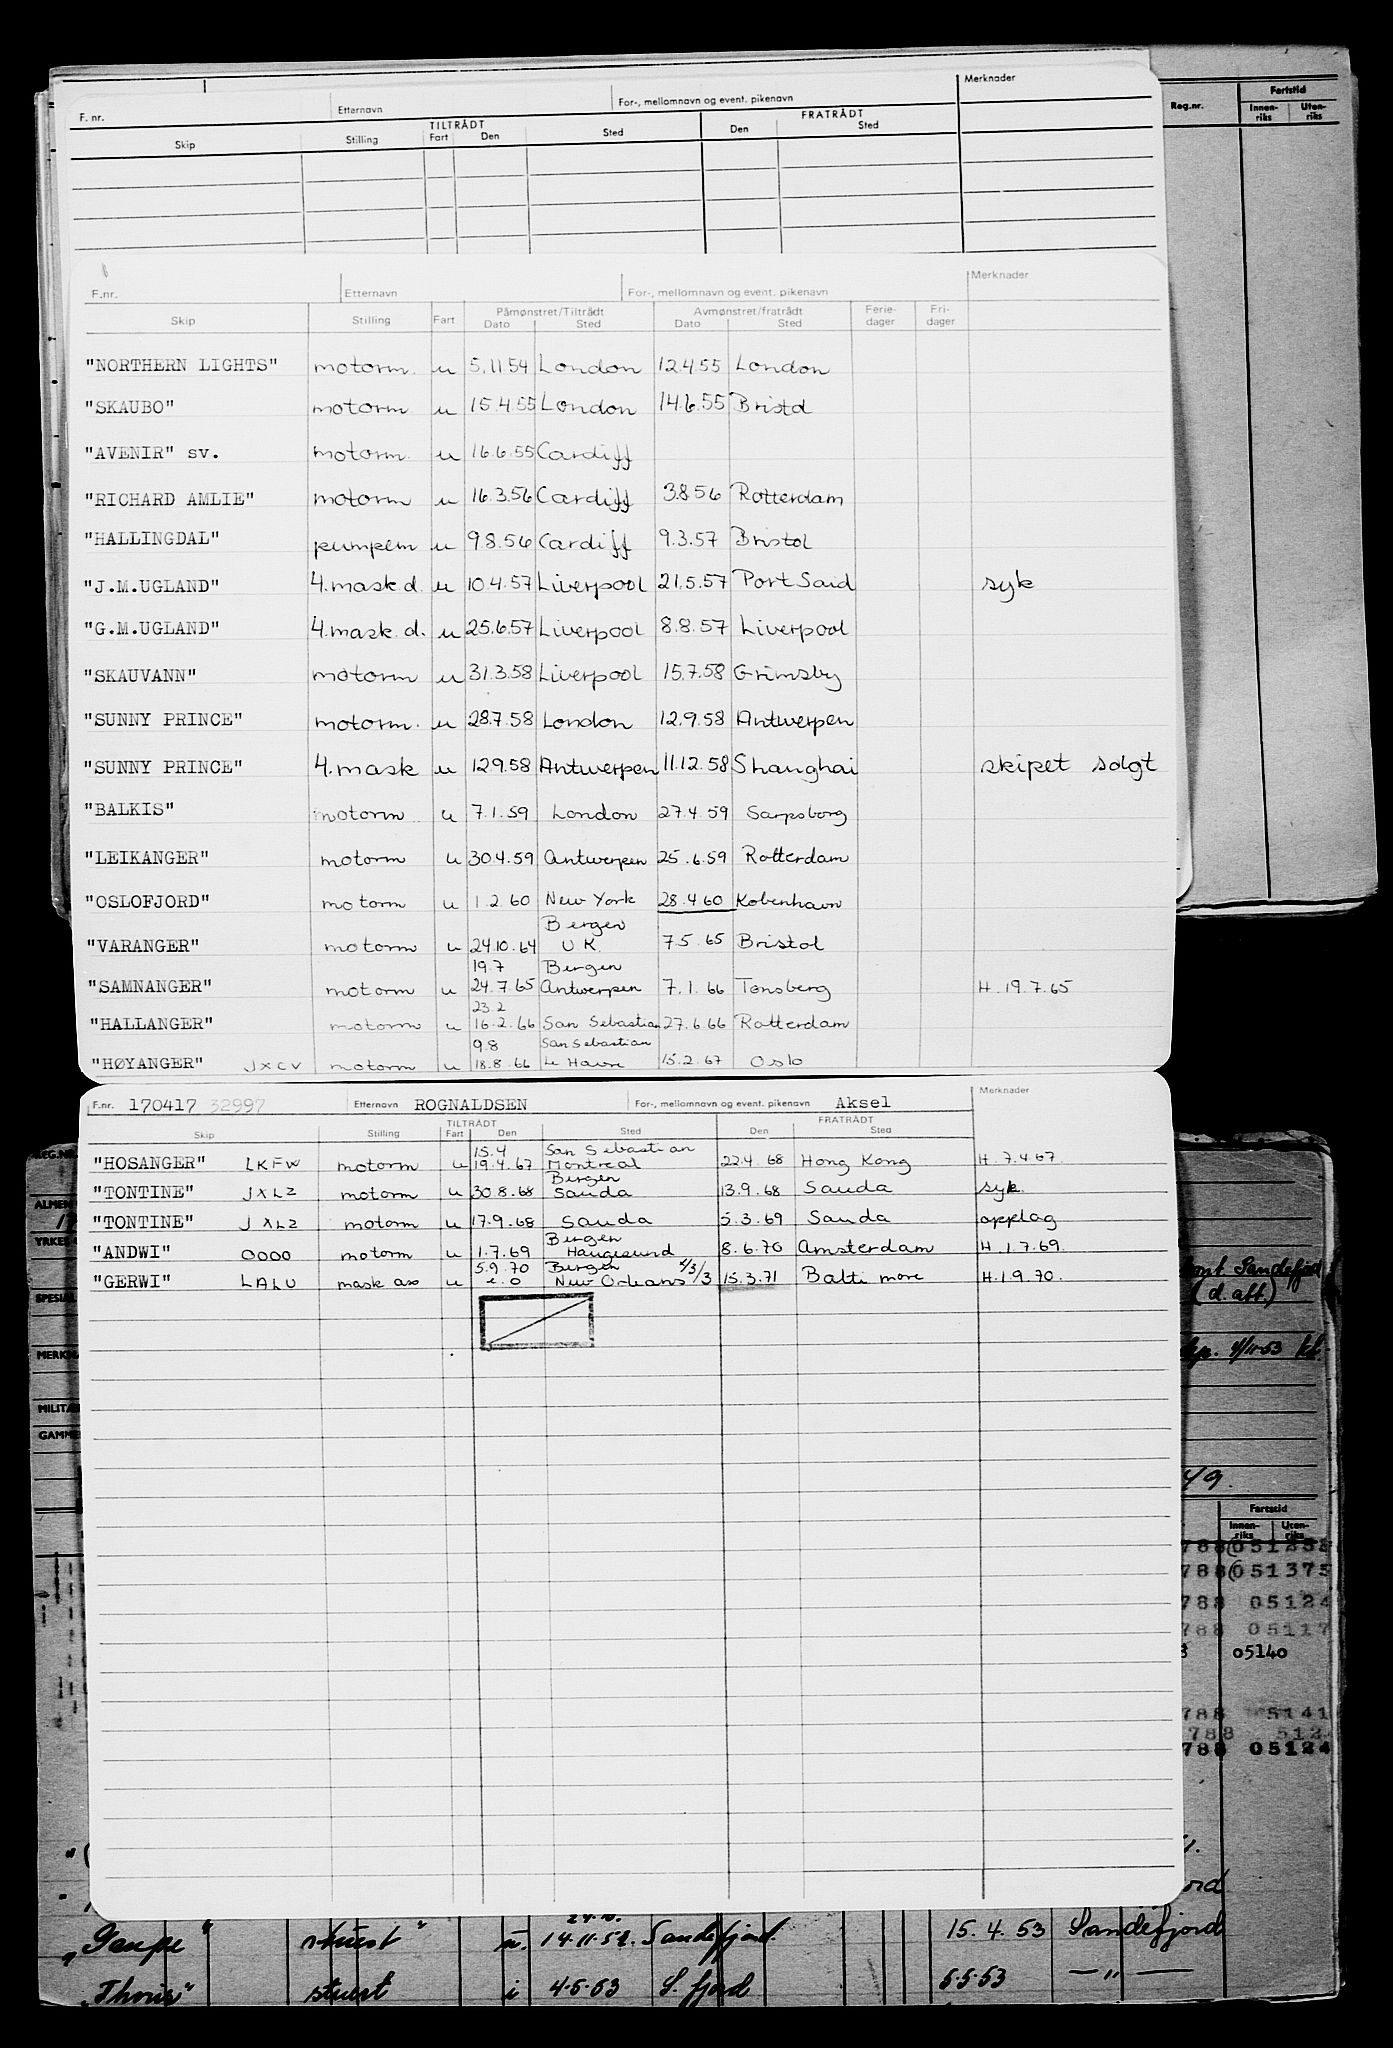 Merknader
F. nr. Etternavn For-, mellomnavn og event. pikenavn
TILTRÅDT FRATRÅDT
Skip Stilling Fart Den Sted Den Sted
Reg.nr. Fartstid
Innen-riks Uten-riks
Merknader
F.nr. Etternavn For-, mellomnavn og event. pikenavn
Påmønstret/Tiltrådt Avmønstret/fratrådt Ferie-dager Fri-dager
Skip Stilling Fart Dato Sted Dato Sted
"NORTHERN LIGHTS" motorm. u 5.11.54 London 12.4.55 London
"SKAUBO" motorm u 15.4.55 London 14.6.55 Bristol
"AVENIR" sv. motorm. u 16.6.55 Cardiff
"RICHARD AMLIE" motorm u 16.3.56 Cardiff 3.8 56 Rotterdam
"HALLINGDAL" pumpem u 9.8.56 Cardiff 9.3.57 Bristol
"J.M.UGLAND" 4.mask.d. u 10.4.57 Liverpool 21.5.57 Port Said syk
"G.M.UGLAND" 4.mask.d. u 25.6.57 Liverpool 8.8.57 Liverpool
"SKAUVANN" motorm u 31.3.58 Liverpool 15.7.58 Grimsby
"SUNNY PRINCE" motorm. u 28.7.58 London 12.9.58 Antwerpen
"SUNNY PRINCE" 4.mask u 12.9.58 Antwerpen 11.12.58 Shanghai skipet solgt
"BALKIS" motorm u 7.1.59 London 27.4.59 Sarpsborg
"LEIKANGER" motorm u 30.4.59 Antwerpen 25.6.59 Rotterdam
"OSLOFJORD" motorm u 1.2.60 New York 28.4 60 København
Bergen
"VARANGER" motorm u 24.10.64 U.K. 7.5.65 Bristol
19.7 Bergen
"SAMNANGER" motorm u 24.7.65 Antwerpen 7.1.66 Tønsberg H.19.7.65
23.2
"HALLANGER" motorm u 16.2.66 San Sebastian 27.6.66 Rotterdam
9.8 San Sebastian
"HØYANGER" JXCV motorm u 18.8.66 Le Havre 15.2.67 Oslo
F.nr. 170417 32997 Etternavn ROGNALDSEN For-, mellomnavn og event. pikenavn Aksel Merknader
TILTRÅDT FRATRÅDT
Skip Stilling Fart Den Sted Den Sted
15.4 San Sebastian
"HOSANGER" LKFW motorm u 19.4.67 Montreal 22.4.68 Hong Kong H.7.4.67.
Bergen
"TONTINE" JXLZ motorm u 30.8.68 Sauda 13.9.68 Sauda syk
"TONTINE" JXLZ motorm u 17.9.68 Sauda 5.3.69 Sauda opplag
Bergen
"ANDWI" OOOO motorm u 1.7.69 Haugesund 8.6.70 Amsterdam H.1.7.69.
5.9.70 Bergen
"GERWI" LALU mask ass u e.o New Orleans 4/3/3 15.3.71 Baltimore H.1.9.70.
REG.NR.
ALMEN
YRKES
SPESIAL
MERKN
MILITÆ
GAMME
Sandefjord
(d. aft.)
49.
Fartstid
Innen-riks Uten-riks
788 051375
788 05124
788 05117
05140
788 5141
788 512
788 05124
ord
24.10.
"Gaupe" stuert u. 14.11.52. Sandefjord. 15.4.53 Sandefjord
"Thoris" stuert i 4.5.53 S.fjord 5.5.53 —"—